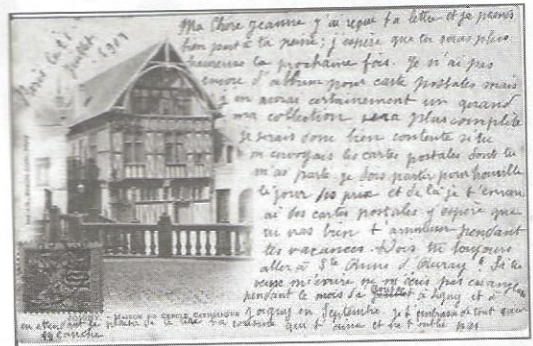 Ma Chère Jeanne j'ai reçue ta lettre et je prends
bien part à ta peine ; j'espère que tu seras plus
heureuse la prochaine fois. Je n'ai pas
encore d'album pour carte postales mais
j'en aurai certainement un quand
ma collection sera plus complète
je serais donc bien contente si tu
m'envoyais les cartes postales dont tu
m'as parlé je dois partir pour
le jour des prix et de là je t'enverr
ai des cartes postales j'espère que
tu vas bien t'amuser pendant
tes vacances. Dois tu toujours
aller à Ste Anne d'Auray ? Si tu
veux m'écrire ne m'écris pas
pendant le mois de à Ligny et à
en Septembre je t'embrasse de tout cœur
en attendant le plaisir de te lire ta cousine qui t'aime et ne t'oublie pas
Blanche
Juillet 1903
MAISON DU CERCLE CATHOLIQUE